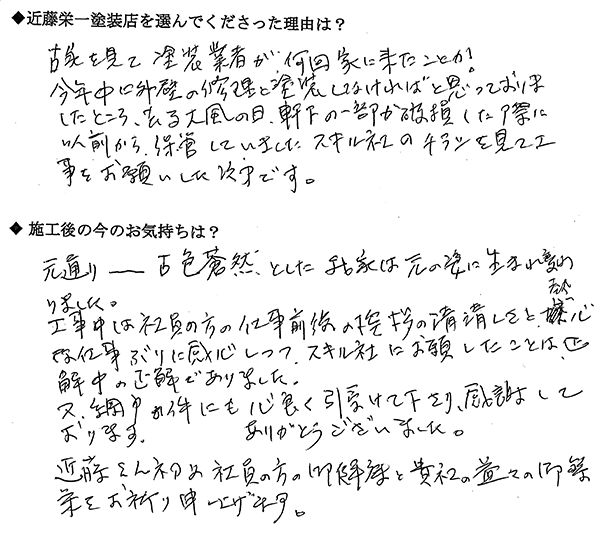 ◆近藤栄一塗装店を選んでくださった理由は？
古家を見て塗装業者が何回家に来たことか!
今年中に外壁の修理と塗装しなければと思っておりま
したところ、去る大風の日、軒下の一部が破損した際に
以前から保管していましたスキル社のチラシを見て工
事をお願いした次第です。
◆ 施工後の今のお気持ちは？
元通り ― 古色蒼然、とした我家は元の姿に生まれ変わ
りました。
工事中は社員の方の仕事前後の挨拶の清清しさと、
な仕事ぶりに感心しつつ、スキル社にお願したことは、正
解中の正解でありました。
又、網戸の件にも心良く引受けて下さり、感謝して
おります。 ありがとうございました。
近藤さん初め社員の方の御健康と貴社の益々の御繁
栄をお祈り申上げます。